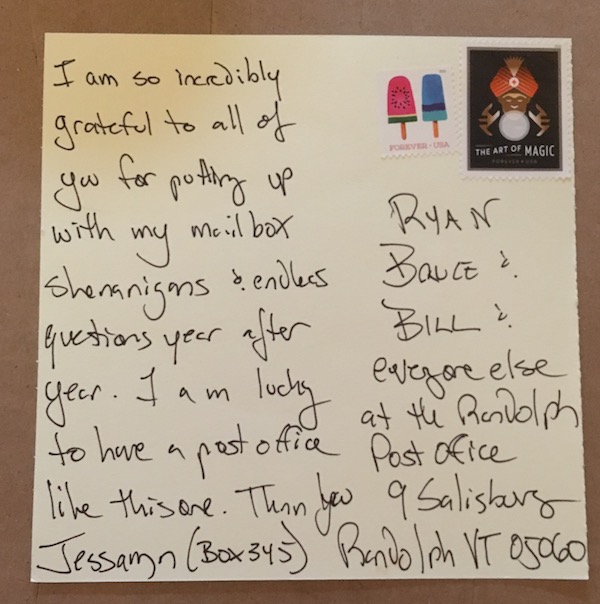 I am so incredibly
grateful to all of
you for putting up
with my mailbox
shenanigans & endless
questions year after
year. I am lucky
to have a post office
like this one. Thank you
Jessamyn (Box 345)
FOREVER • USA
THE ART OF MAGIC
FOREVER • USA
RYAN
BRUCE &
BILL &
everyone else
at the Randolph
Post Office
9 Salisbury
Randolph VT 05060